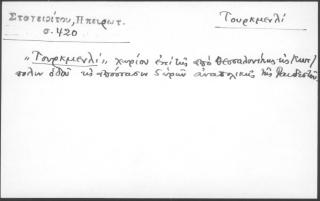 Στογειρίτου, Ηπειρωτ.
σ. 420
Τουρκμενλί
"Τουρκμενλί," χωρίον ἐπί τῆς ἀπό Θεσσαλονίκης εἰς Κων/
πολιν ὁδοῦ εἰς ἀπόστασιν 5 ὡρῶν ἀνατολικῶς τῆς Ραιδεστοῦ.